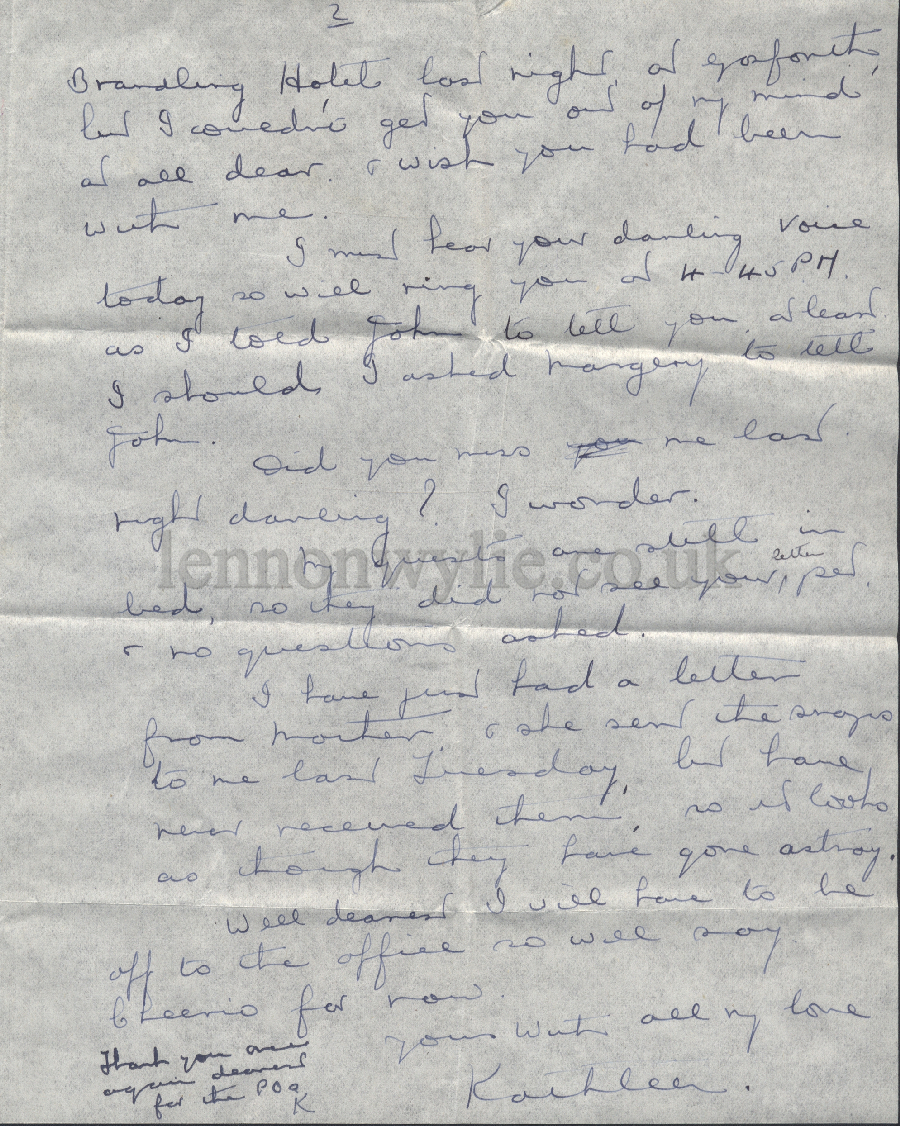 2
Brandling Hotel last night, at Gosforth,
but I couldn't get you out of my mind
at all dear. & wish you had been
with me.
I must hear your darling voice
today so will ring you at 4-45PM.
as I told John to tell you, at least
I should, I asked Margery to tell
John.
Did you miss you me last
night darling? I wonder.
My guests are still in
bed, so they did not see your letter, pet.
& no questions asked.
I have just had a letter
from Mother, & she sent the snaps
to me last Tuesday, but have
never received them, so it looks
as though they have gone astray.
Well dearest I will have to be
off to the office so will say
Cheerio for now.
yours with all my love
Kathleen.
Thank you once
again dearest
for the POs
K
lennonwylie.co.uk